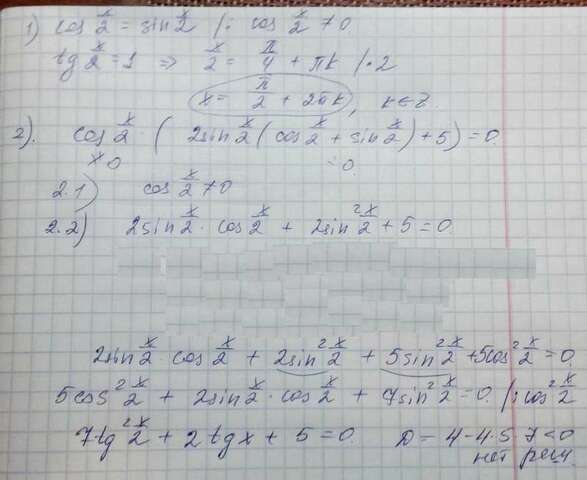 1) cos x/2 = sin x/2 /: cos x/2 ≠ 0
tg x/2 = 1 => x/2 = π/4 + πk /·2
x = π/2 + 2πk, k∈Z.
2). cos x/2 · ( 2sin x/2 (cos x/2 + sin x/2) + 5) = 0
≠0 = 0.
2.1) cos x/2 ≠ 0
2.2) 2sin x/2 · cos x/2 + 2sin² x/2 + 5 = 0.
2sin x/2 · cos x/2 + 2sin² x/2 + 5sin² x/2 + 5cos² x/2 = 0.
5cos² x/2 + 2sin x/2 · cos x/2 + 7sin² x/2 = 0. /: cos² x/2
7tg² x/2 + 2tgx + 5 = 0. D = 4 - 4·5·7 < 0
нет реш.